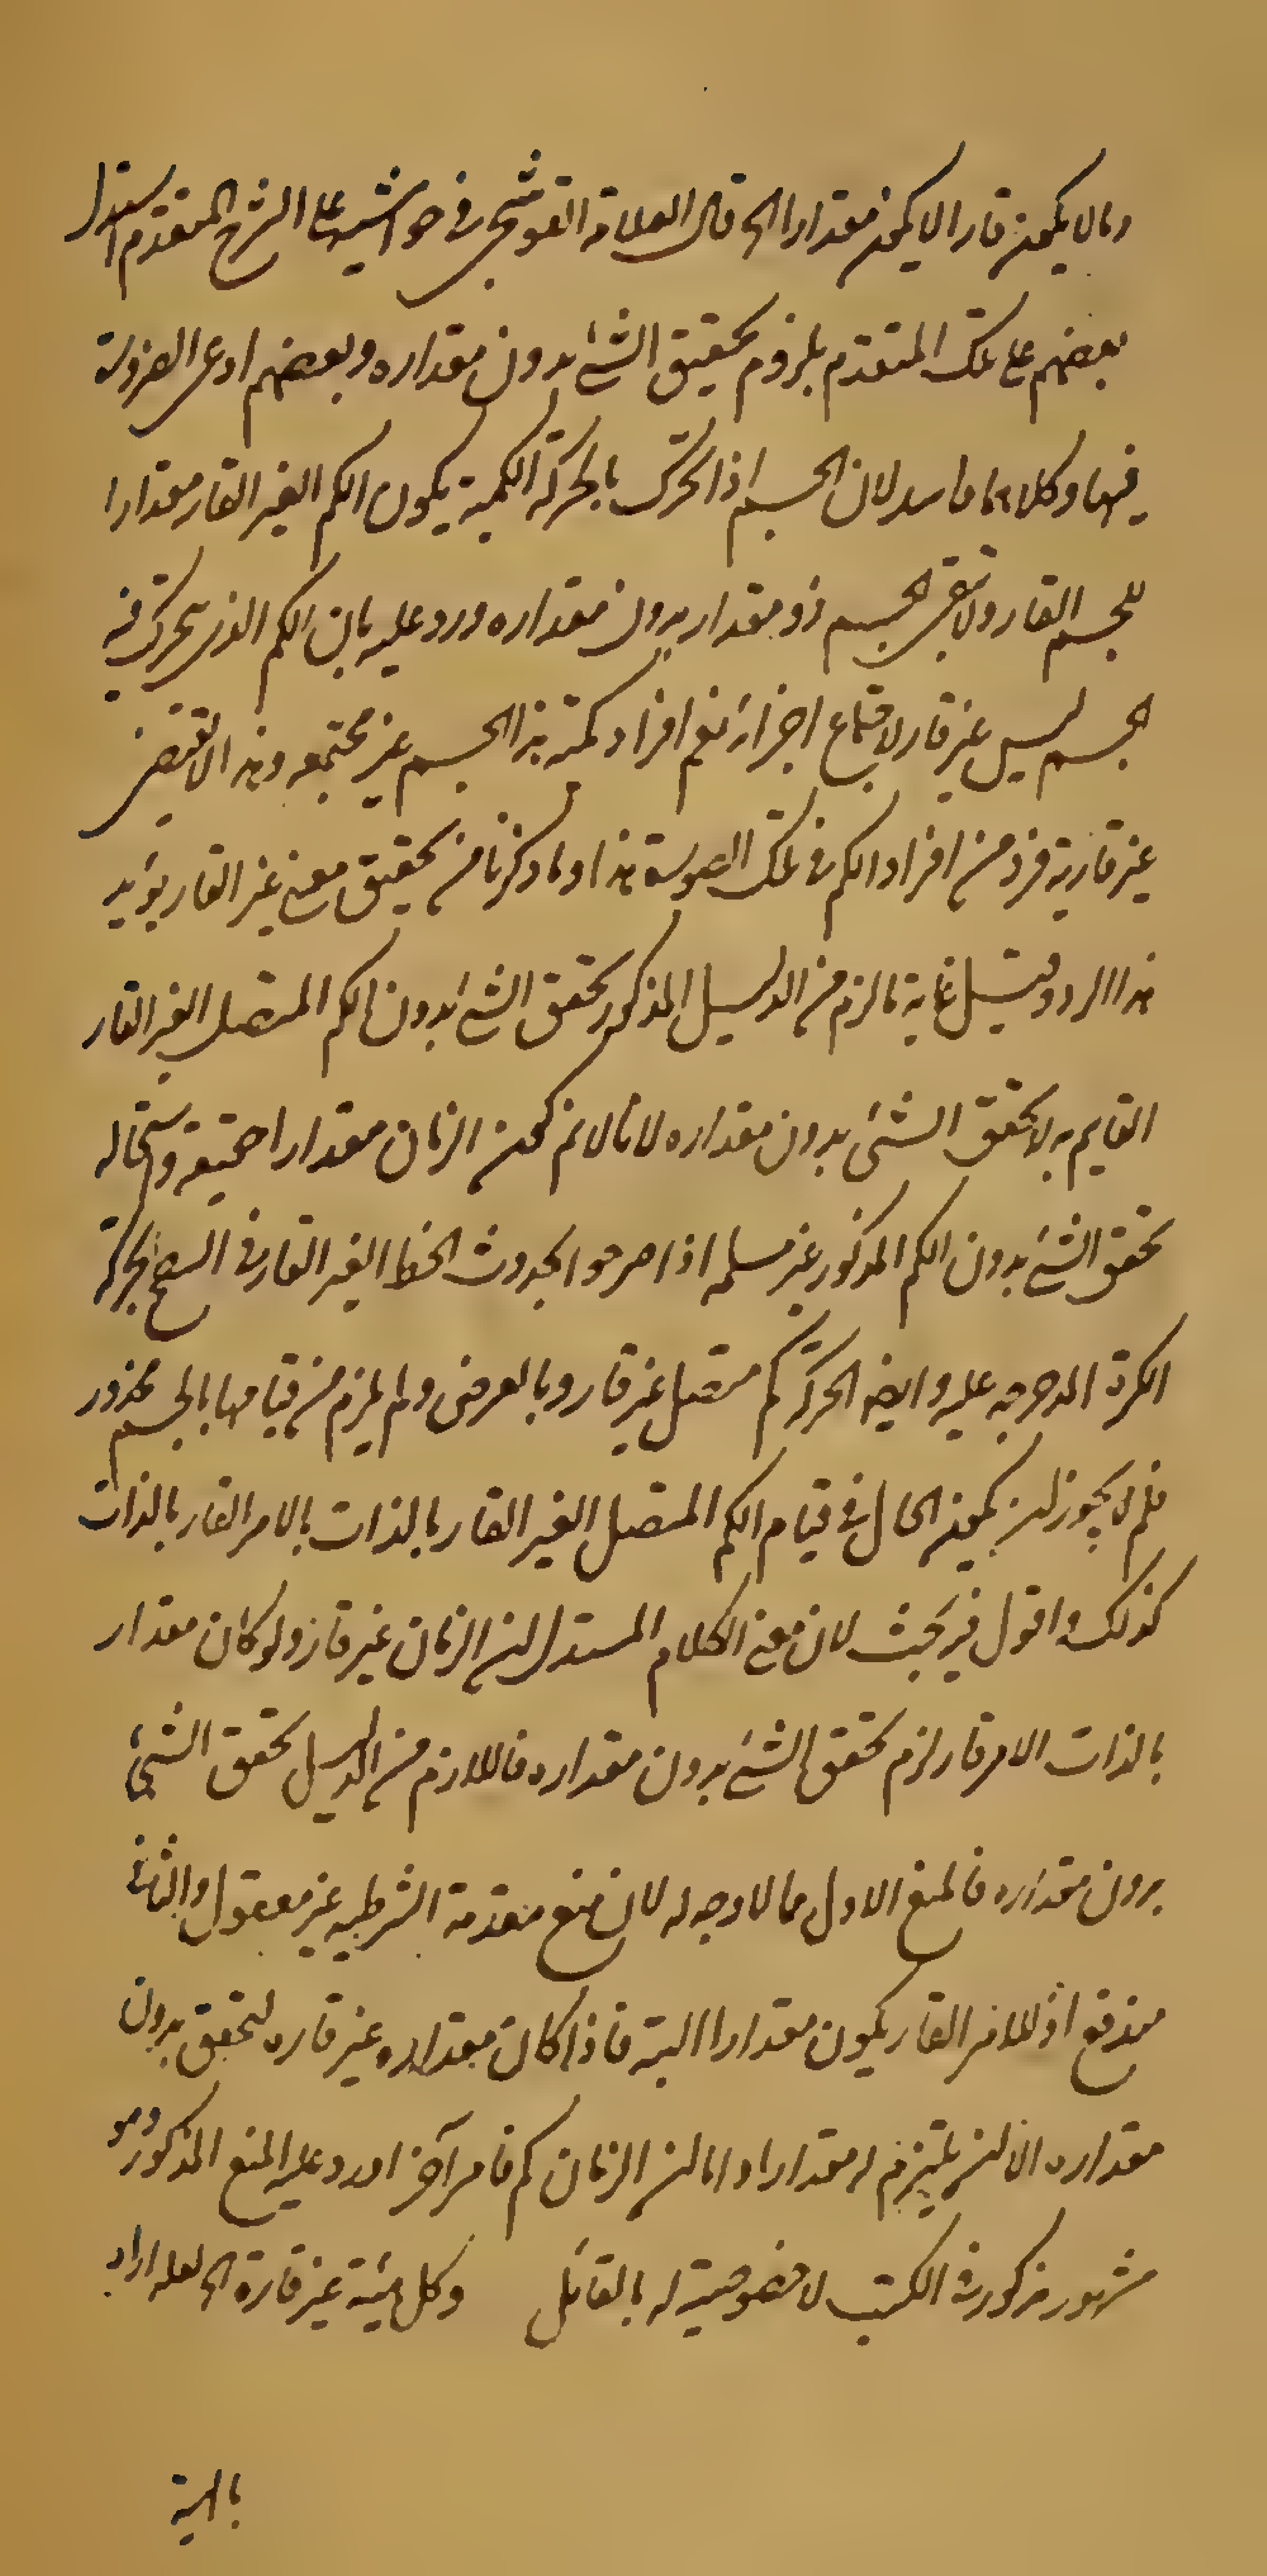 وما لا يكون قارا لا يكون مقدارا الخ قال العلامة القوشجي في حواشيه على الشرح المتقدم استدل
بعضهم على تلك المتقدم بلزوم تحقيق الشئ بدون مقداره وبعضهم ادعى الضرورة
فيها وكلاهما فاسد لان الجسم اذا تحرك بالحركة الكمية يكون الكم الغير القار مقدارا
للجسم القار ولا تبقى الجسم ذو مقدار بدون مقداره ورد عليه بان الكم الذي يتحرك فيه
الجسم ليس غير قار لاجتماع اجزائه نعم افراد كمية هذا الجسم غير مجتمعه وهذا لا يقتضى
غير قارية فرد من افراد الكم في تلك الصورة هذا وما ذكرنا من تحقيق معنى غير القار يؤيد
هذا الرد وقيل غاية ما لزم من الدليل المذكور تحقق الشئ بدون الكم المتصل الغير القار
القايم به لا تحقق الشئ بدون مقداره لانا لا نم كون الزمان مقدارا حقيقة واستحالة
تحقق الشئ بدون الكم المذكور غير مسلمه اذا صرحوا بحدوث الخط الغير القار في السطح بحركة
الكرة المدحرجه عليه وايضا الحركة كم متصل غير قار وبالعرض ولم يلزم من قيامها بالجسم محذور
فلم لا يجوز ان يكون الحال في قيام الكم المتصل الغير القار بالذات بالامر القار بالذات
كذلك واقول فيه بحث لان معنى الكلام المستدل ان الزمان غير قار ولو كان مقدار
بالذات لامر قار لزم تحقق الشئ بدون مقداره فاللازم من الدليل تحقق الشئ
بدون مقداره فالمنع الاول مما لا وجه له لان منع مقدمة الشرطيه غير معقول والثانى
مندفع اذ للامر القار يكون مقدارا البته فاذا كان مقداره غير قاره لتحقق بدون
مقداره الا ان يلتزم له مقدارا واما ان الزمان كم فامر آخر اورد عليه المنع المذكور وهو
مشهور مذكور في الكتب لا خصوصية له بالقائل وكل هيئة غير قارة الخ لعله اراد
بالهيئة